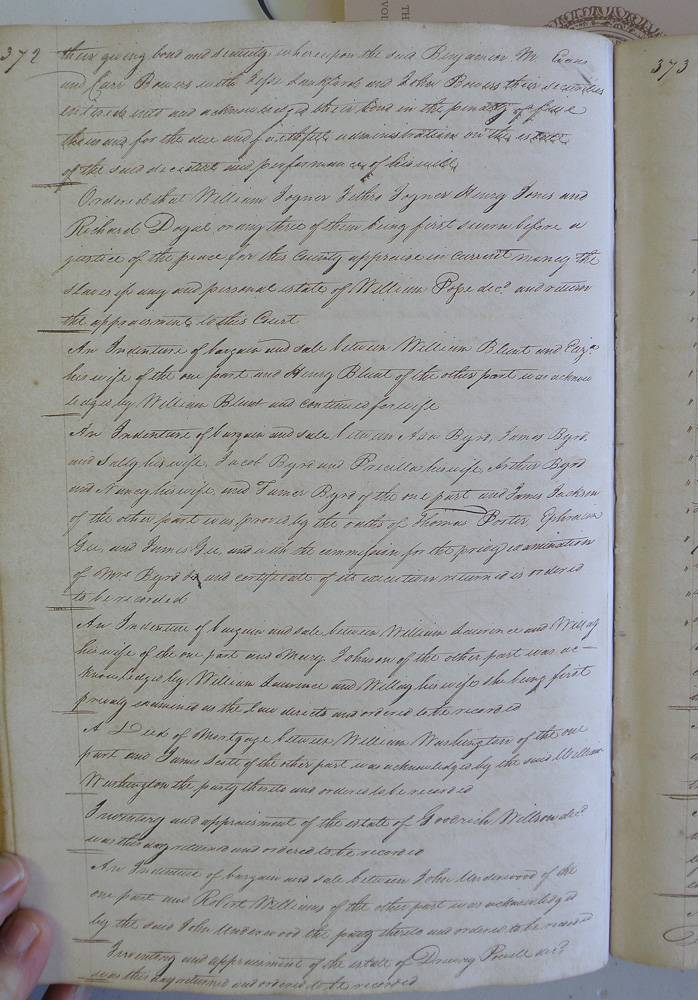 372
their giving bond and security whereupon the said Benjamin M Evans
and Carr Bowers with Jesse Lankford and John Bowers their securities
entered into and acknowledged their bond in the penalty of five
thousand for the due and faithful administration on the estate
of the said decedent and performance of his will
Ordered that William Joyner Jethro Joyner Henry Jones and
Richard Doyal or any three of them being first sworn before a
justice of the peace for this County appraise in current money the
slaves if any and personal estate of William Pope decd and return
the appraisment to this Court
An Indenture of bargain and sale between William Blunt and Eliza
his wife of the one part and Henry Blunt of the other part was acknow
ledged by William Blunt and continued for wife
An Indenture of bargain and sale between Asa Byrd, James Byrd,
and Sally his wife, Jacob Byrd and Precella his wife, Arthur Byrd
and Nancy his wife, and Tamer Byrd of the one part and James Jackson
of the other part was proved by the oaths of Thomas Porter, Ephraim
Gee, and James Gee, and with the commission for the privy examination
of Mrs Byrd &c and certificate of its execution returned is ordered
to be recorded
An Indenture of bargain and sale between William Lawrence and
his wife of the one part and Mary Johnson of the other part was ac-
knowledged by William Lawrence and his wife she being first
privily examined as the Law directs and ordered to be recorded
A Deed of Mortgage between William Washington of the one
part and James Scott of the other part was acknowledged by the said William
Washington the party thereto and ordered to be recorded
Inventory and appraisment of the estate of Goodrich Willson decd
was this day returned and ordered to be recorded
An Indenture of bargain and sale between John Underwood of the
one part and Robert Williams of the other part was acknowledged
by the said John Underwood the party thereto and ordered to be recorded
Inventory and appraisment of the estate of Drewry Powell decd
was this day returned and ordered to be recorded
373
TH
VOL